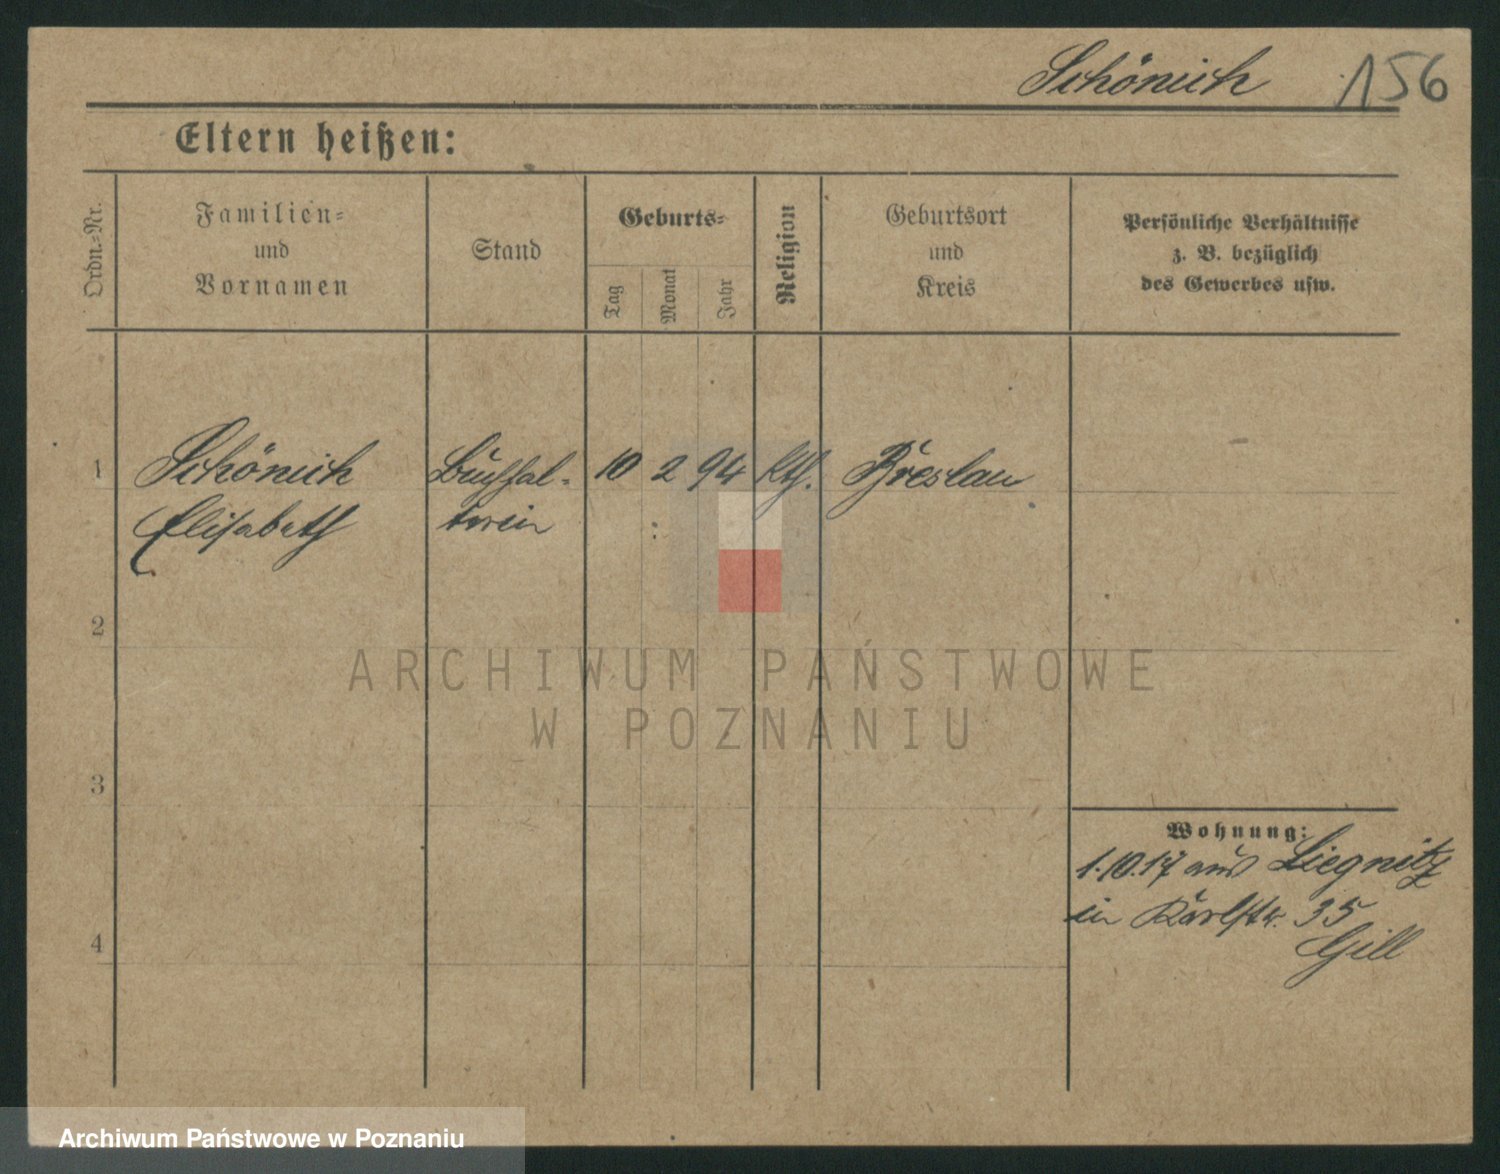 Schönich 156
Eltern heißen:
Ordn.=Nr.
Familien=
und
Vornamen
Stand
Geburts=
Tag
Monat
Jahr
Religion
Geburtsort
und
Kreis
Persönliche Verhältnisse
z. B. bezüglich
des Gewerbes usw.
1 Schönich Buchhal- 10 2 94 kth. Breslau
Elisabeth terin
2
3
4
ARCHIWUM PAŃSTWOWE
W POZNANIU
Wohnung:
1.10.17 aus Liegnitz
in Karlstr. 35
Gill
Archiwum Państwowe w Poznaniu